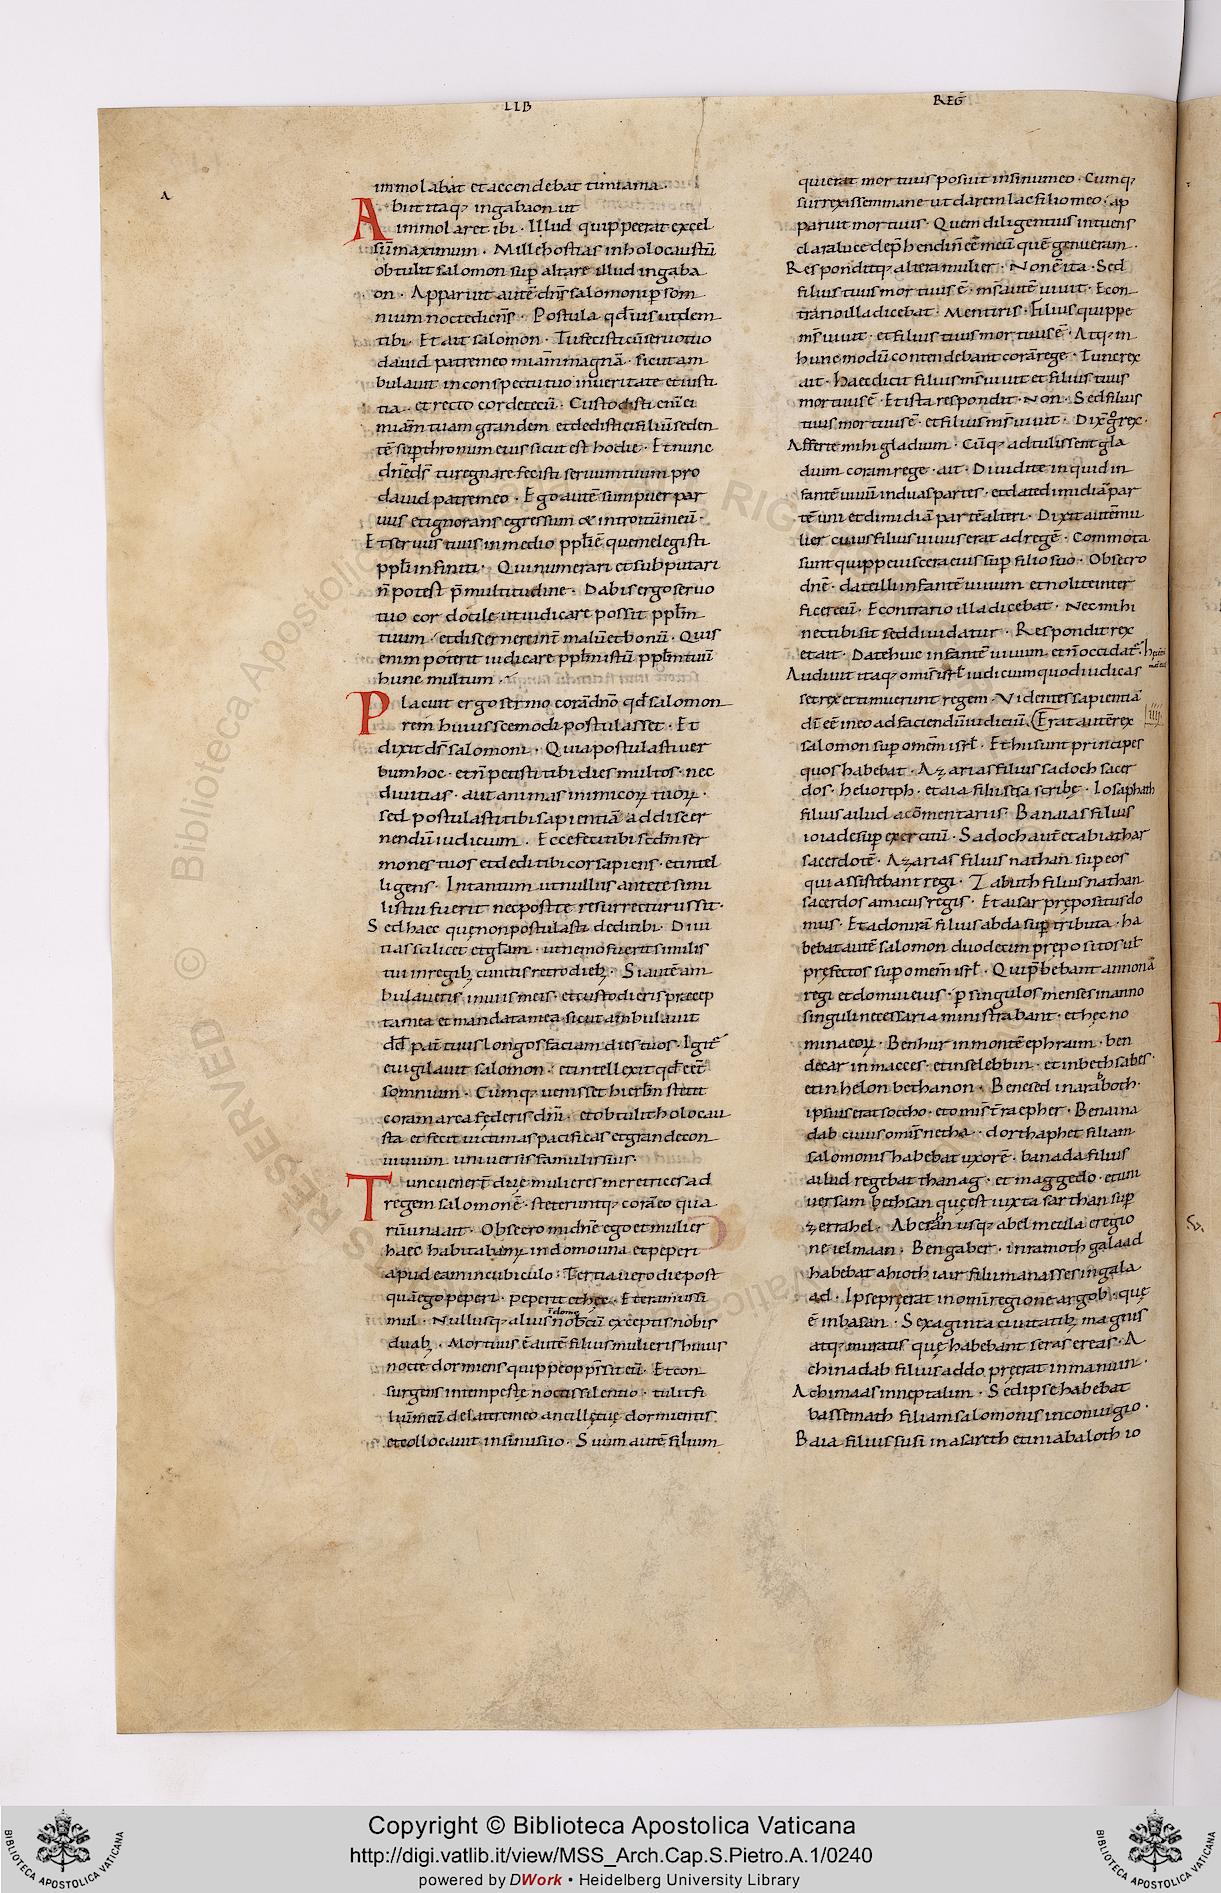 LIB
REḠ
A
immolabat et accendebat timiama ·
Abiit itaq; ingabaon ut
immolaret ibi · Illud quippe erat excel
sū maximum · Mille hostias in holocaustū
obtulit salomon sup̄ altare illud ingaba
on · Apparuit autē dn̄s salomoni p̄ som
nium nocte dicens · Postula qđ uis ut dem
tibi · Et ait salomon · Tu fecisti cū seruo tuo
dauid patre meo miam̄ magnā · sicut am
bulauit in conspectu tuo in ueritate et iusti
tia · et recto corde tecū · Custodisti eum ei
miam̄ tuam grandem et dedisti ei filiū seden
tē sup̄ thronum eius sicut est hodie · Et nunc
dnē dš tu regnare fecisti seruum tuum pro
dauid patre meo · Ego autē sum puer par
uus et ignorans egressum & introitū meū ·
Et seruus tuus in medio ppłi ē quem elegisti
ppłi infiniti · Qui numerari et subputari
n̄ potest p̄ multitudine · Dabis ergo seruo
tuo cor docile ut iudicare possit ppłm
tuum · et discernere int̄ malū et bonū · Quis
enim poterit iudicare ppłm istū ppłm tuū
hunc multum ·
Placuit ergo sermo corā dn̄o qđ salomon
rem huiuscemodi postulasset · Et
dixit dš salomoni · Quia postulasti uer
bum hoc · et n̄ petisti tibi dies multos · nec
diuitias · aut animas inimicoꝝ tuoꝝ ·
sed postulasti tibi sapientiā ad discer
nendū iudicium · Ecce feci tibi sedm̄ ser
mones tuos et dedi tibi cor sapiens · et intel
ligens · Intantum ut nullus ante te simi
lis tui fuerit nec post te resurrecturus sit ·
Sed haec quę non postulasti dedi tibi · Diui
tias scilicet et głam · ut nemo fuerit similis
tui in regib; cunctis retro dieb; · Si autē am
bulaueris in uiis meis · et custodieris praecep
ta mea et mandata mea sicut ambulauit
dđ pat̄ tuus longos faciam dies tuos · Igit̄
euigilauit salomon · et intellexit qđ eēt
somnium · Cumq; uenisset hierłm stetit
coram arca fęderis dn̄i · et obtulit holocau
sta et fecit uictimas pacificas et grande con
uiuium uniuersis famulis suis ·
Tunc uenert̄ duę mulieres meretrices ad
regem salomonē · steteruntq; corā eo qua
rū una ait · Obsecro mi dnē ego et mulier
haec habitabam; in domo una et peperi
apud eam in cubiculo · Tertia uero die post
quā ego peperi · peperit et hęc · Et eramus si
mul · Nullusq; alius nobcū exceptis nobis
duab; · Mortuus ē autē filius mulieris huius
nocte dormiens quippe oppr̄ssit eū · Et con
surgens intempestę noctis silentio · tulit fi
liū meū de latere meo ancillę tuę dormientis
et collocauit in sinu suo · Suum autē filium
quierat mortuus posuit in sinu meo · Cumq;
surrexissem mane ut darem lac filio meo · ap
paruit mortuus · Quem diligentius intuens
clara luce dep̄hendi n̄ eē meū quē genueram ·
Responditq; altera mulier · Non ē ita · Sed
filius tuus mortuus ē · ms̄ autē uiuit · Econ
trario illa dicebat · Mentiris · Filius quippe
ms̄ uiuit · et filius tuus mortuus ē · Atq; in
hunc modū contendebant corā rege · Tunc rex
ait · haec dicit filius ms̄ uiuit et filius tuus
mortuus ē · Et ista respondit · Non · Sed filius
tuus mortuus ē · et filius ms̄ uiuit · Dix̄ g̊ rex ·
Afferte mihi gladium · Cūq; adtulissent gla
dium coram rege · ait · Diuidite inquid in
fantē uiuū in duas partes · et date dimidiā par
tē uni et dimidiā partē alteri · Dixit autē mu
lier cuius filius uiuus erat ad regē · Commota
sunt quippe uiscera eius sup̄ filio suo · Obsecro
dnē · date illi infantē uiuum et nolite inter
ficere eū · E contrario illa dicebat · Nec mihi
nec tibi sit sed diuidatur · Respondit rex
et ait · Date huic infantē uiuum et n̄ occidat̄ ·
Audiuit itaq; omis̄ isrł iudicium quod iudicas
set rex et timuerunt regem · Videntes sapientiā
dī eē in eo ad faciendū iudiciū · Erat autē rex
IIII
salomon sup̄ omēm isrł · Et hi sunt principes
quos habebat · Azarias filius sadoch sacer
dos · helioreph · et aia filii sesa scribę · Iosaphath
filius ailud a cōmentariis · Banaias filius
ioiade sup̄ exercitū · Sadoch aut̄ et abiathar
sacerdotē · Azarias filius nathan sup̄ eos
qui assistebant regi · Zabuth filius nathan
sacerdos amicus regis · Et aisar prępositus do
mus · Et adonirā filius abda sup̄ tributa · ha
bebat autē salomon duodecim prępositos uł
pręfectos sup̄ omem̄ isrł · Qui p̄bebant annonā
regi et domui eius · p̄ singulos menses in anno
singuli necessaria ministrabant · et hęc no
mina eoꝝ · Benhur in monte ephraim · ben
decar in macces · et in selebbin · et in beth sabes ·
et in helon bethanon · Benesed in araboth ·
ipsius erat soccho · et omis̄ t̄ra epher · Benaina
dab cuius omis̄ netha · dorthaphet filiam
salomonis habebat uxorē · banada filius
ailud regebat thanag · et maggedo · et uni
uersam bethsan quę est iuxta sarthan sup̄
zerrahel · A bersan usq; abel meula e regio
ne ielmaan · Bengaber · in ramoth galaad
habebat ahioth iair filii manasse in gala
ad · Ipse pręerat in omī regione argob · quę
ē in basan · Sexaginta ciuitatib; magnis
atq; muratis quę habebant seras ereas · A
chinadab filius addo pręerat in manaim ·
Achimaas in neptalim · Sed ipse habebat
bassemath filiam salomonis in coniugio ·
Baia filius susi in asareth et in iabaloth · io
© Biblioteca Apostolica Vaticana
RIGHTS RESERVED
Copyright © Biblioteca Apostolica Vaticana
http://digi.vatlib.it/view/MSS_Arch.Cap.S.Pietro.A.1/0240
powered by DWork • Heidelberg University Library
BIBLIOTECA APOSTOLICA VATICANA
BIBLIOTECA APOSTOLICA VATICANA